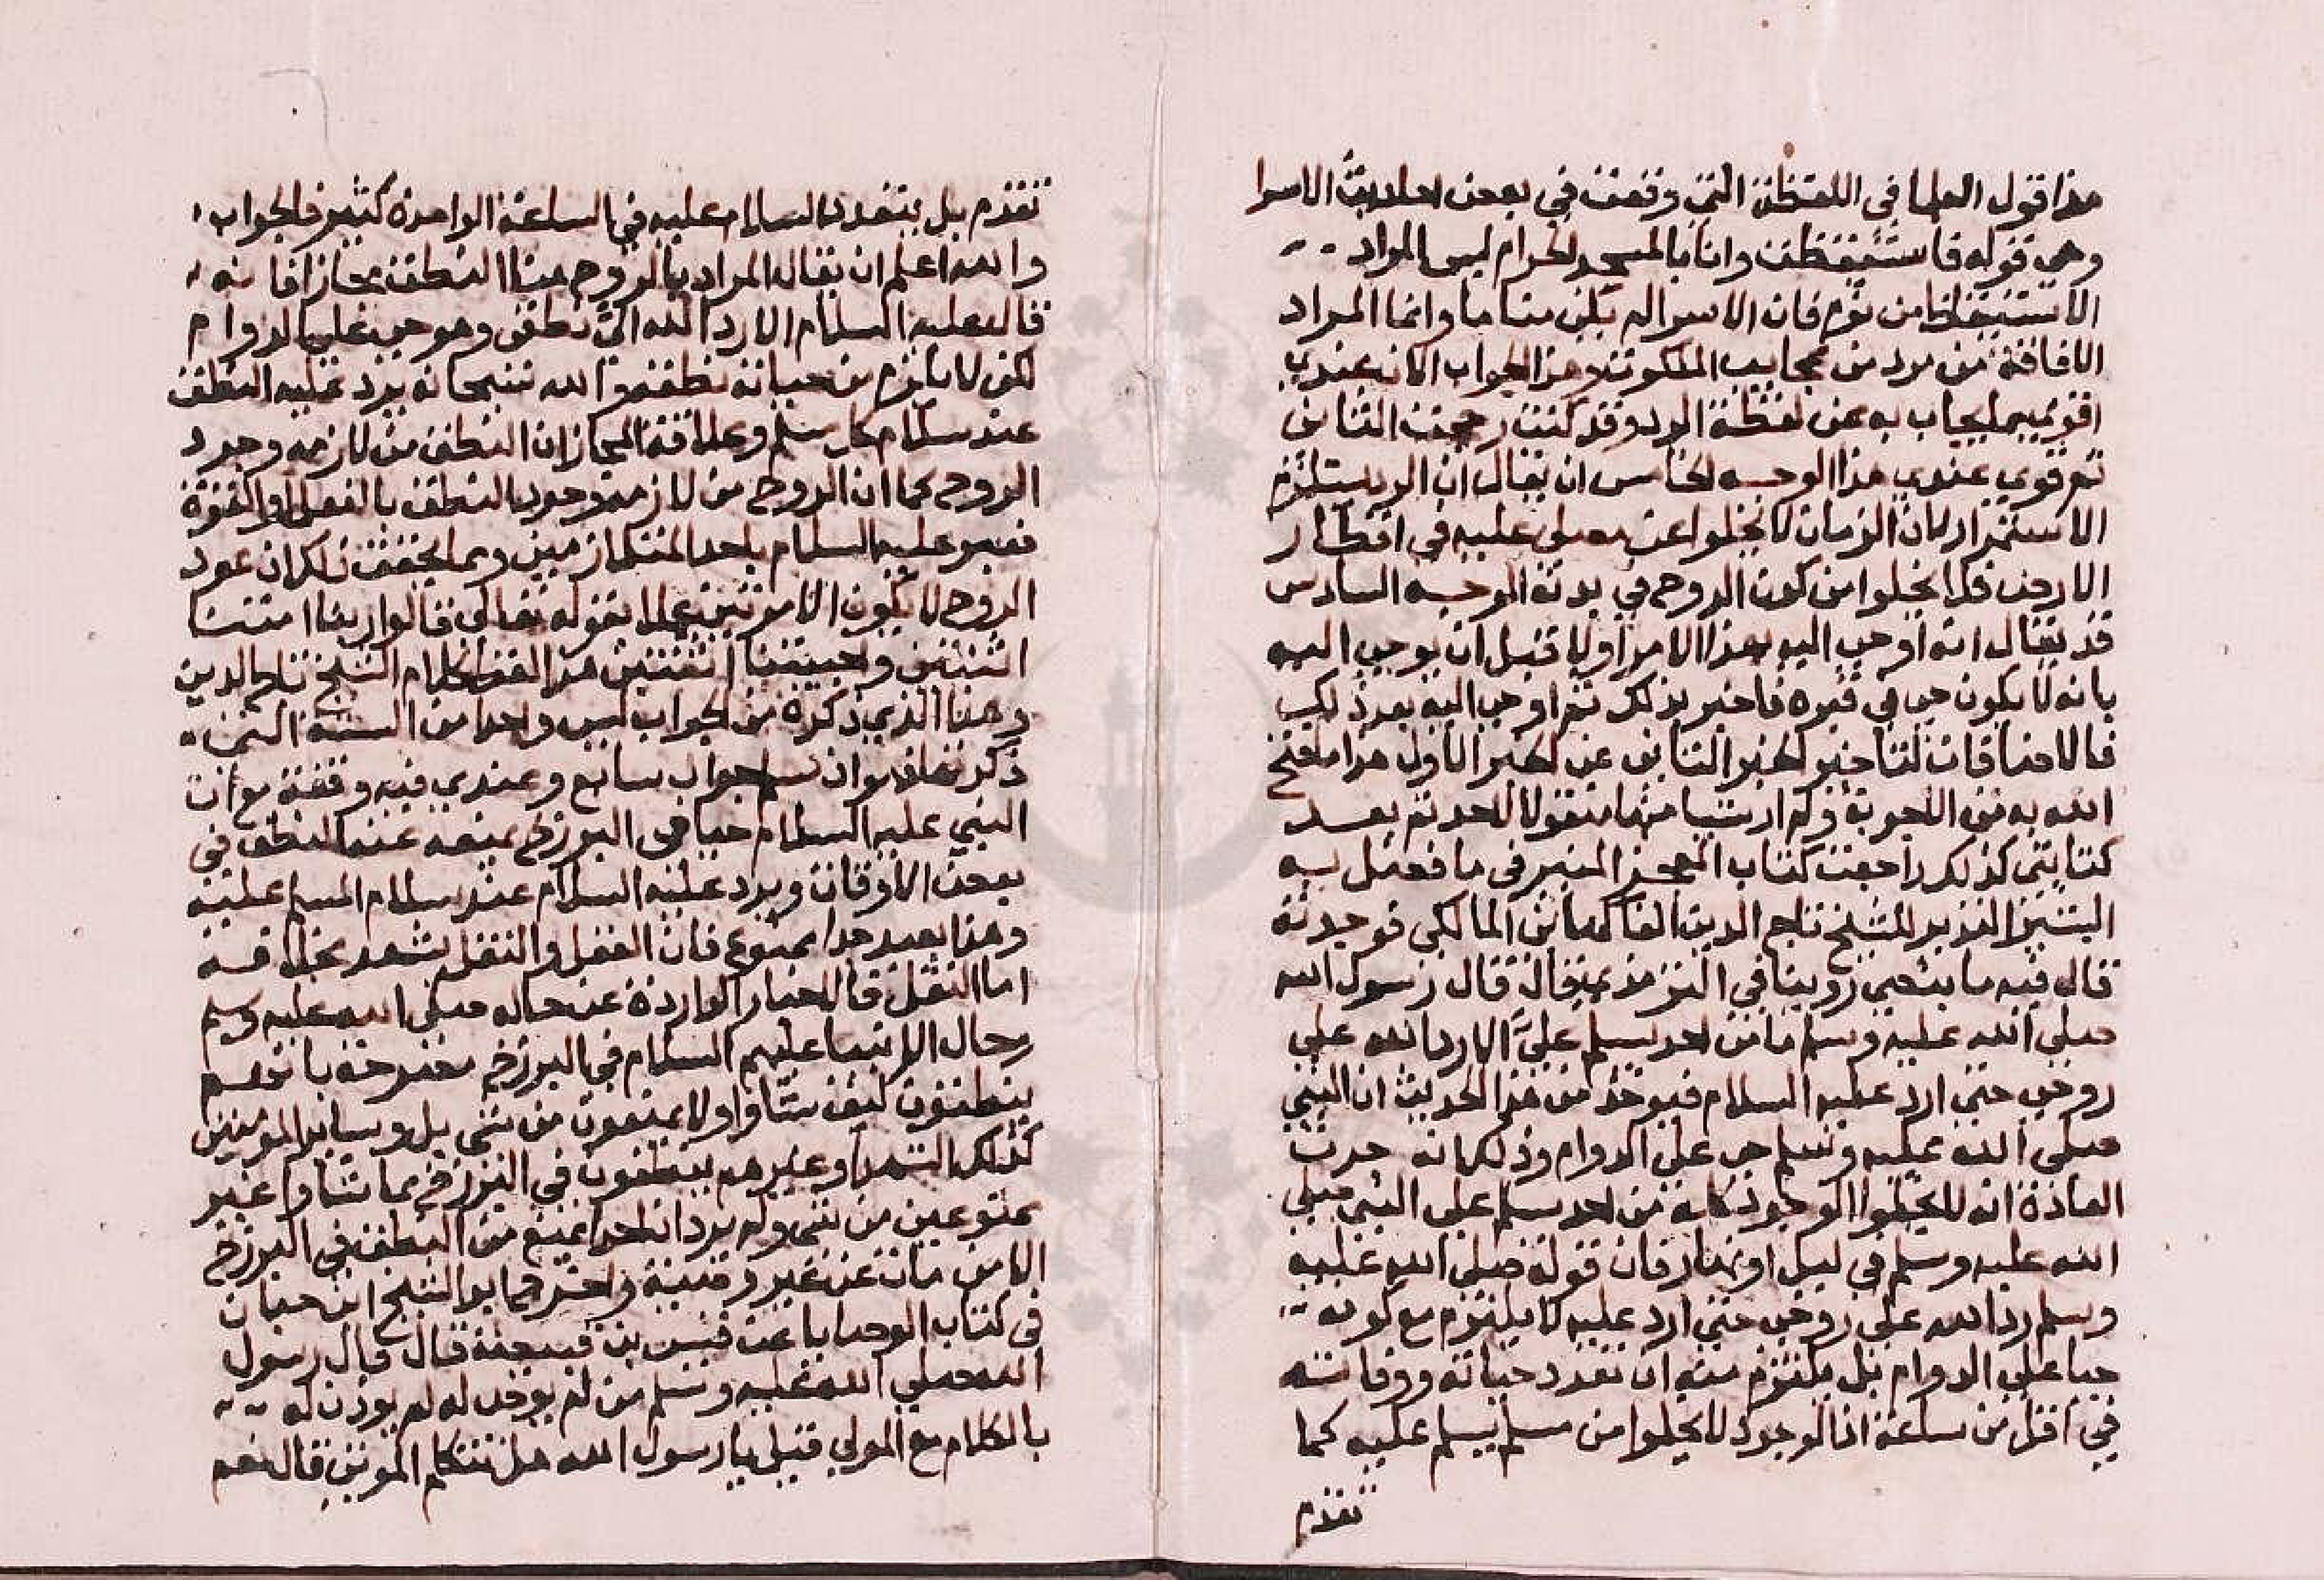 هذا قول العلما في اللفظة التي وقعت في بعض احاديث الاسرا
وهي قوله فاستيقظت وانا بالمسجد الحرام ليس المراد
الاستيقاظ من نوم فان الاسرا لم يكن مناما وانما المراد
الافاقة من مرد من عجايب الملكوت وهذا الجواب الان عندي
اقوي بما يجاب به عن لفظة الرد وقد كنت رجحت الثاني
ثم قوي عندي هذا الوجه الخامس ان يقال ان الرد يستلزم
الاستمرار لان الزمان لا يخلوا عن مصلى عليه في اقطار
الارض فلا يخلوا من كون الروح في بدنه الوجه السادس
قد يقال انه اوحي اليه بهذا الامر اولا قبل ان يوحي اليه
بانه لا يكون حي في قبره فاخبر بذلك ثم اوحي اليه بعد ذلك
فالا منافات لتاخير الخبر الثاني عن الخبر الاول هذا ما فتح
الله به من الاجوبة ولم ار شيا منها منقولا لاحد ثم بعد
كتابتي كذلك راجعت كتاب الفجر المنير في ما فضل به
البشير النذير للشيخ تاج الدين الفاكهاني المالكي فوجدته
قال فيه ما نصه روينا في الترمذي قال قال رسول الله
صلى الله عليه وسلم ما من احد يسلم عليّ الا رد الله علي
روحي حتى ارد عليه السلام فيوخذ من هذا الحديث ان النبي
صلى الله عليه وسلم حي على الدوام وذلك انه جرت
العادة انه لا يخلوا الوجود كله من احد يسلم على النبي صلى
الله عليه وسلم في ليل او نهار فان قوله صلى الله عليه
وسلم رد الله علي روحي حتى ارد عليه لا يلتزم مع كونه
حيا على الدوام بل يلتزم منه ان تعدد حياته ووفاته
في اقل من ساعة اذ الوجود لا يخلوا من مسلم يسلم عليه كما
تقدم
تقدم بل يتعدد السلام عليه في الساعة الواحدة كثير فالجواب
والله اعلم ان يقال المراد بالروح هنا النطق مجازا فانه
قال عليه السلام الا رد الله اليّ نطقي وهو حي على الدوام
لكن لا يلزم من حياته نطقه والله سبحانه يرد عليه النطق
عند سلام كل مسلم وعلاقة المجاز ان النطق من لازمه وجود
الروح كما ان الروح من لازمه وجود النطق بالفعل او القوة
فعبر عليه السلام باحد المتلازمين ومما يحقق ذلك ان عود
الروح لا يكون الا مرتين عملا بقوله تعالي قالوا ربنا امتنا
اثنتين واحييتنا اثنتين هذا لفظ كلام الشيخ تاج الدين
وهذا الذي ذكره من الجواب ليس واحدا من الستة التي
ذكرتها فهو ان سلم جواب سابع وعندي فيه وقفة مع ان
النبي عليه السلام حيا في البرزخ يمنع عنه النطق في
بعض الاوقات ويرد عليه السلام عند سلام المسلم عليه
وهذا بعيد جدا ممنوع فان العقل والنقل يشهد بخلافه
اما النقل فالاخبار الواردة عن حاله صلى الله عليه وسلم
وحال الانبيا عليهم السلام في البرزخ مصرحة بانهم
ينطقون كيف شاوا ولا يمنعون من شي بل وساير المومنين
كذلك الشهدا وغيرهم ينطقون في البرزخ بما شاوا غير
ممنوعين من شي ولم يرد ان احدا يمنع من النطق في البرزخ
الا من مات عن غير وصية واخرج ابو الشيخ ابن حبان
في كتاب الوصايا عن قيس بن قبيصة قال قال رسول
الله صلى الله عليه وسلم من لم يوص له لم يوذن له
بالكلام مع الموتي قيل يا رسول الله هل تتكلم الموتي قال نعم